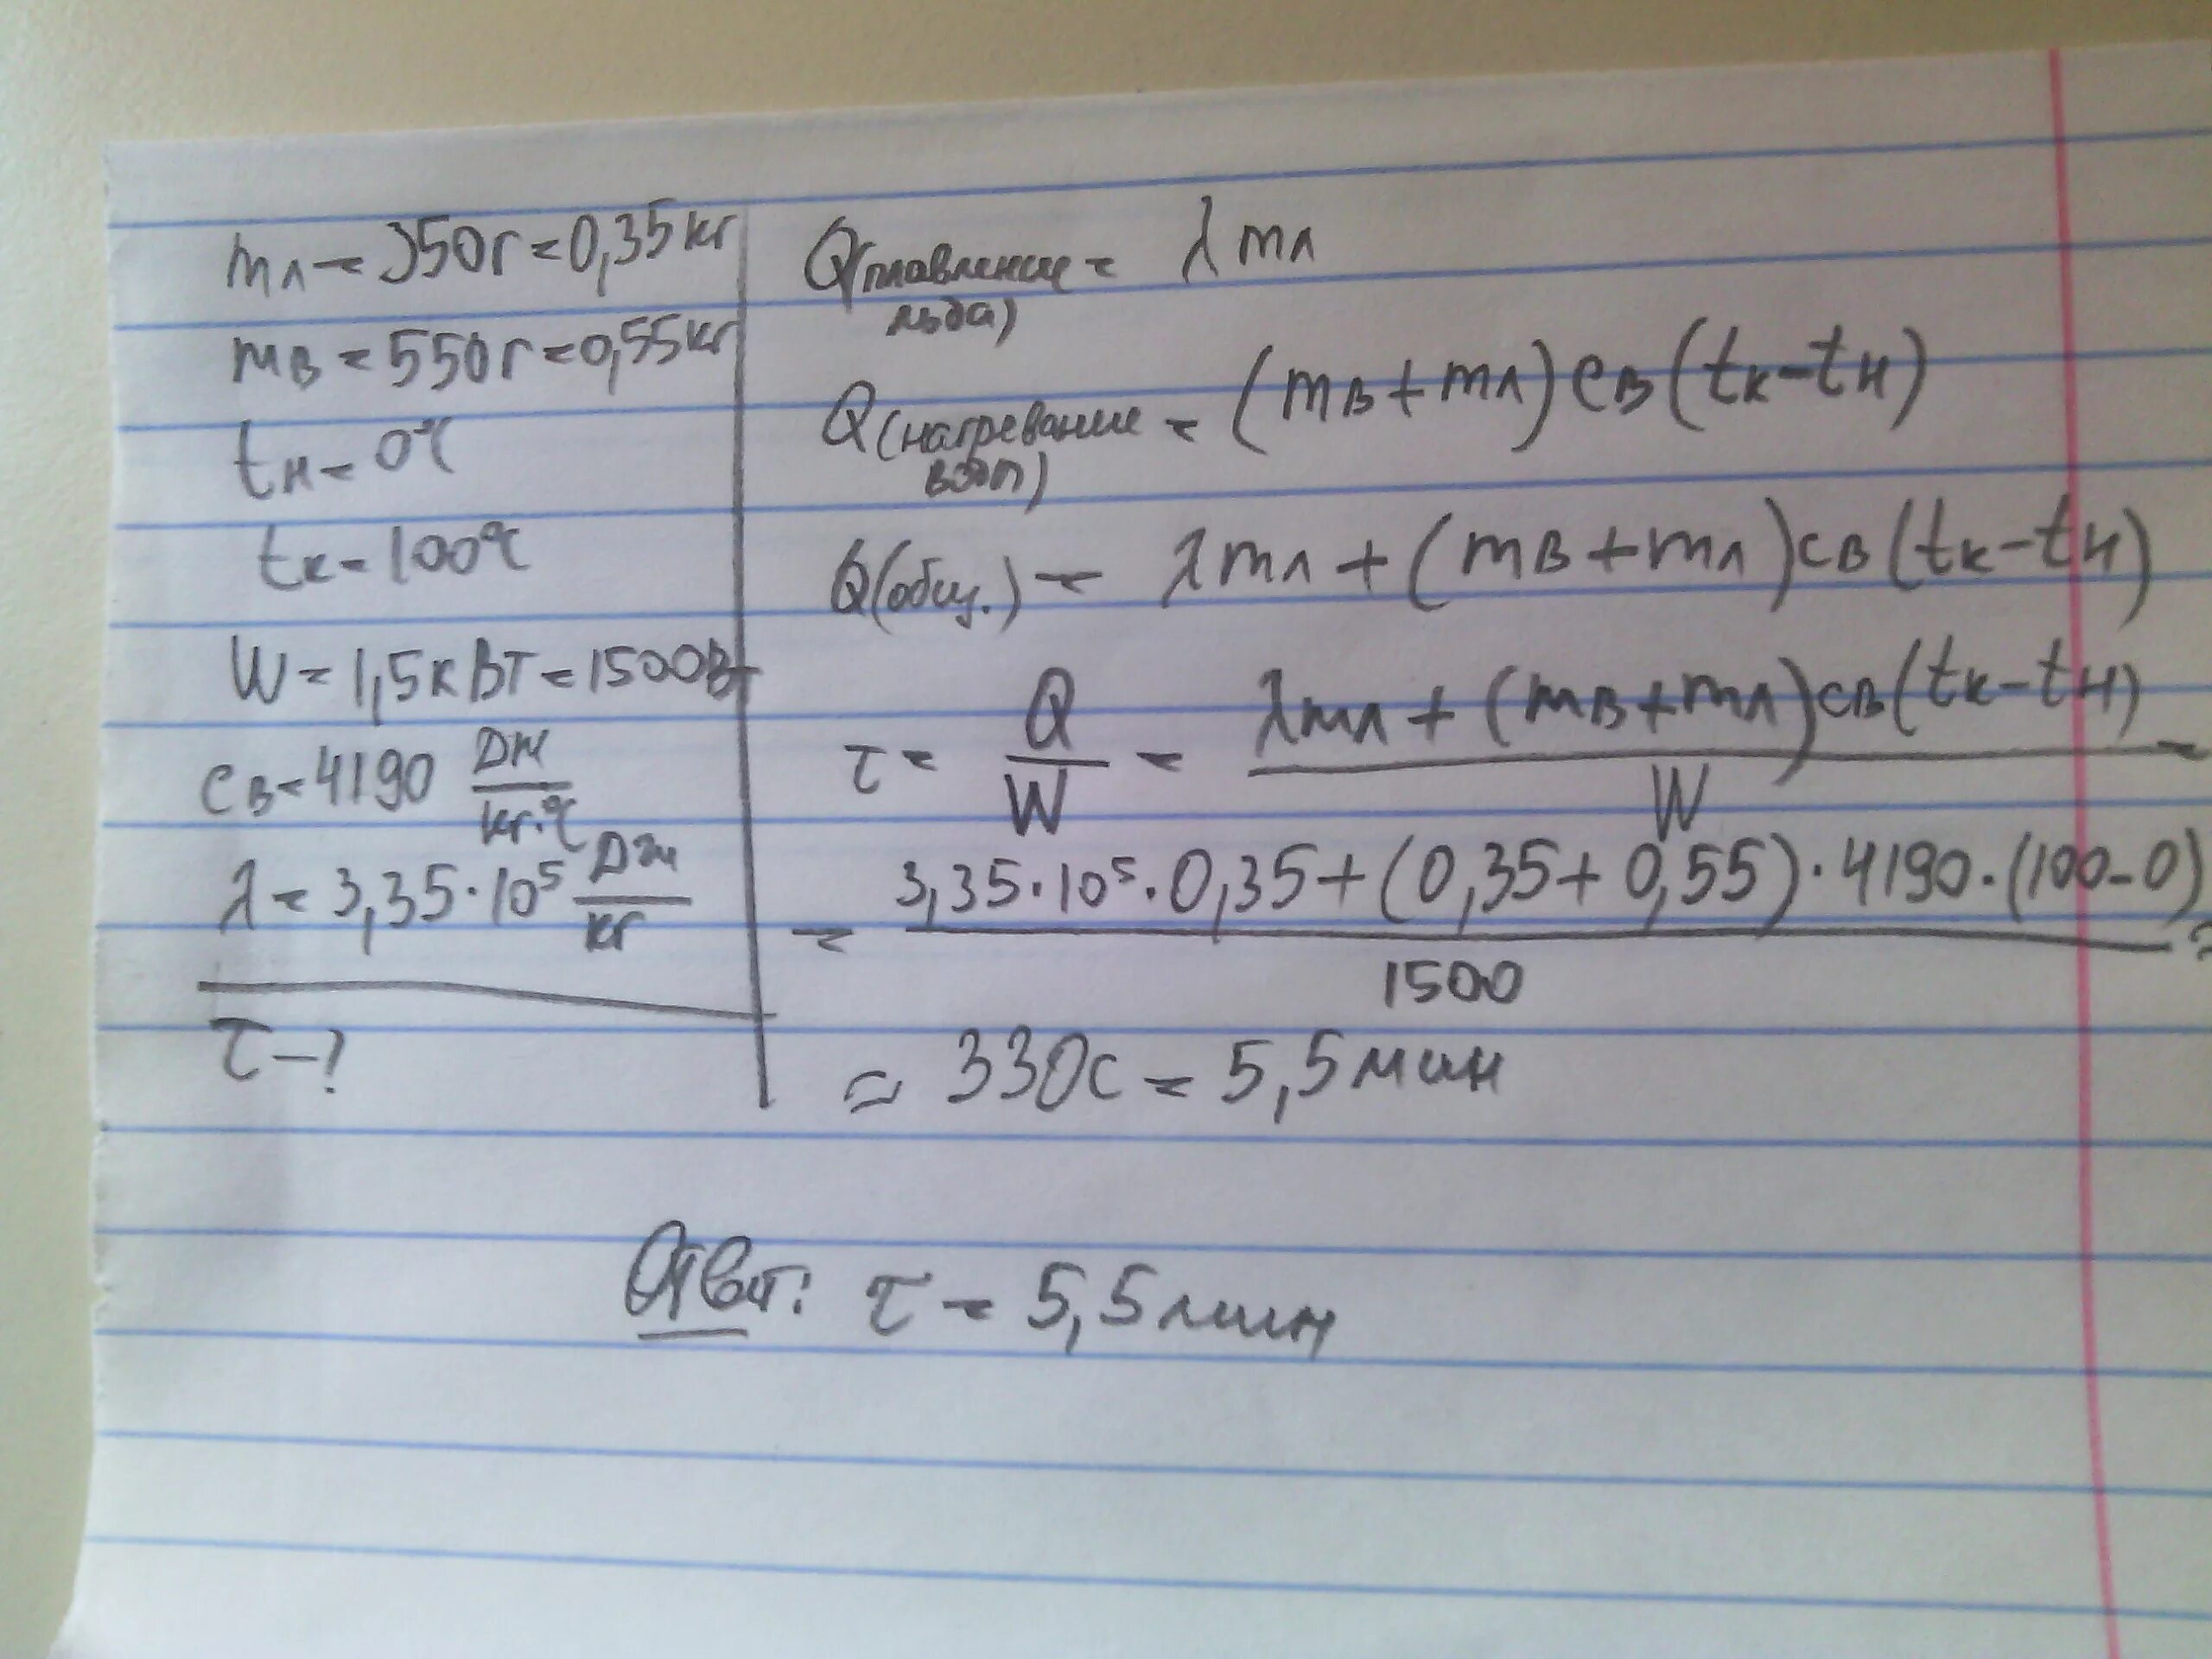 mл = 350г = 0,35кг
mв = 550г = 0,55кг
tн = 0°C
tк = 100°C
W = 1,5кВт = 1500Вт
cв = 4190 Дж/кг·°C
λ = 3,35·10⁵ Дж/кг
τ - ?
Q(плавление льда) = λmл
Q(нагревание воды) = (mв+mл)cв(tк-tн)
Q(общ.) = λmл + (mв+mл)cв(tк-tн)
τ = Q/W = λmл + (mв+mл)cв(tк-tн) / W =
= 3,35·10⁵·0,35+(0,35+0,55)·4190·(100-0) / 1500 =
= 330с = 5,5мин
Ответ: τ = 5,5мин